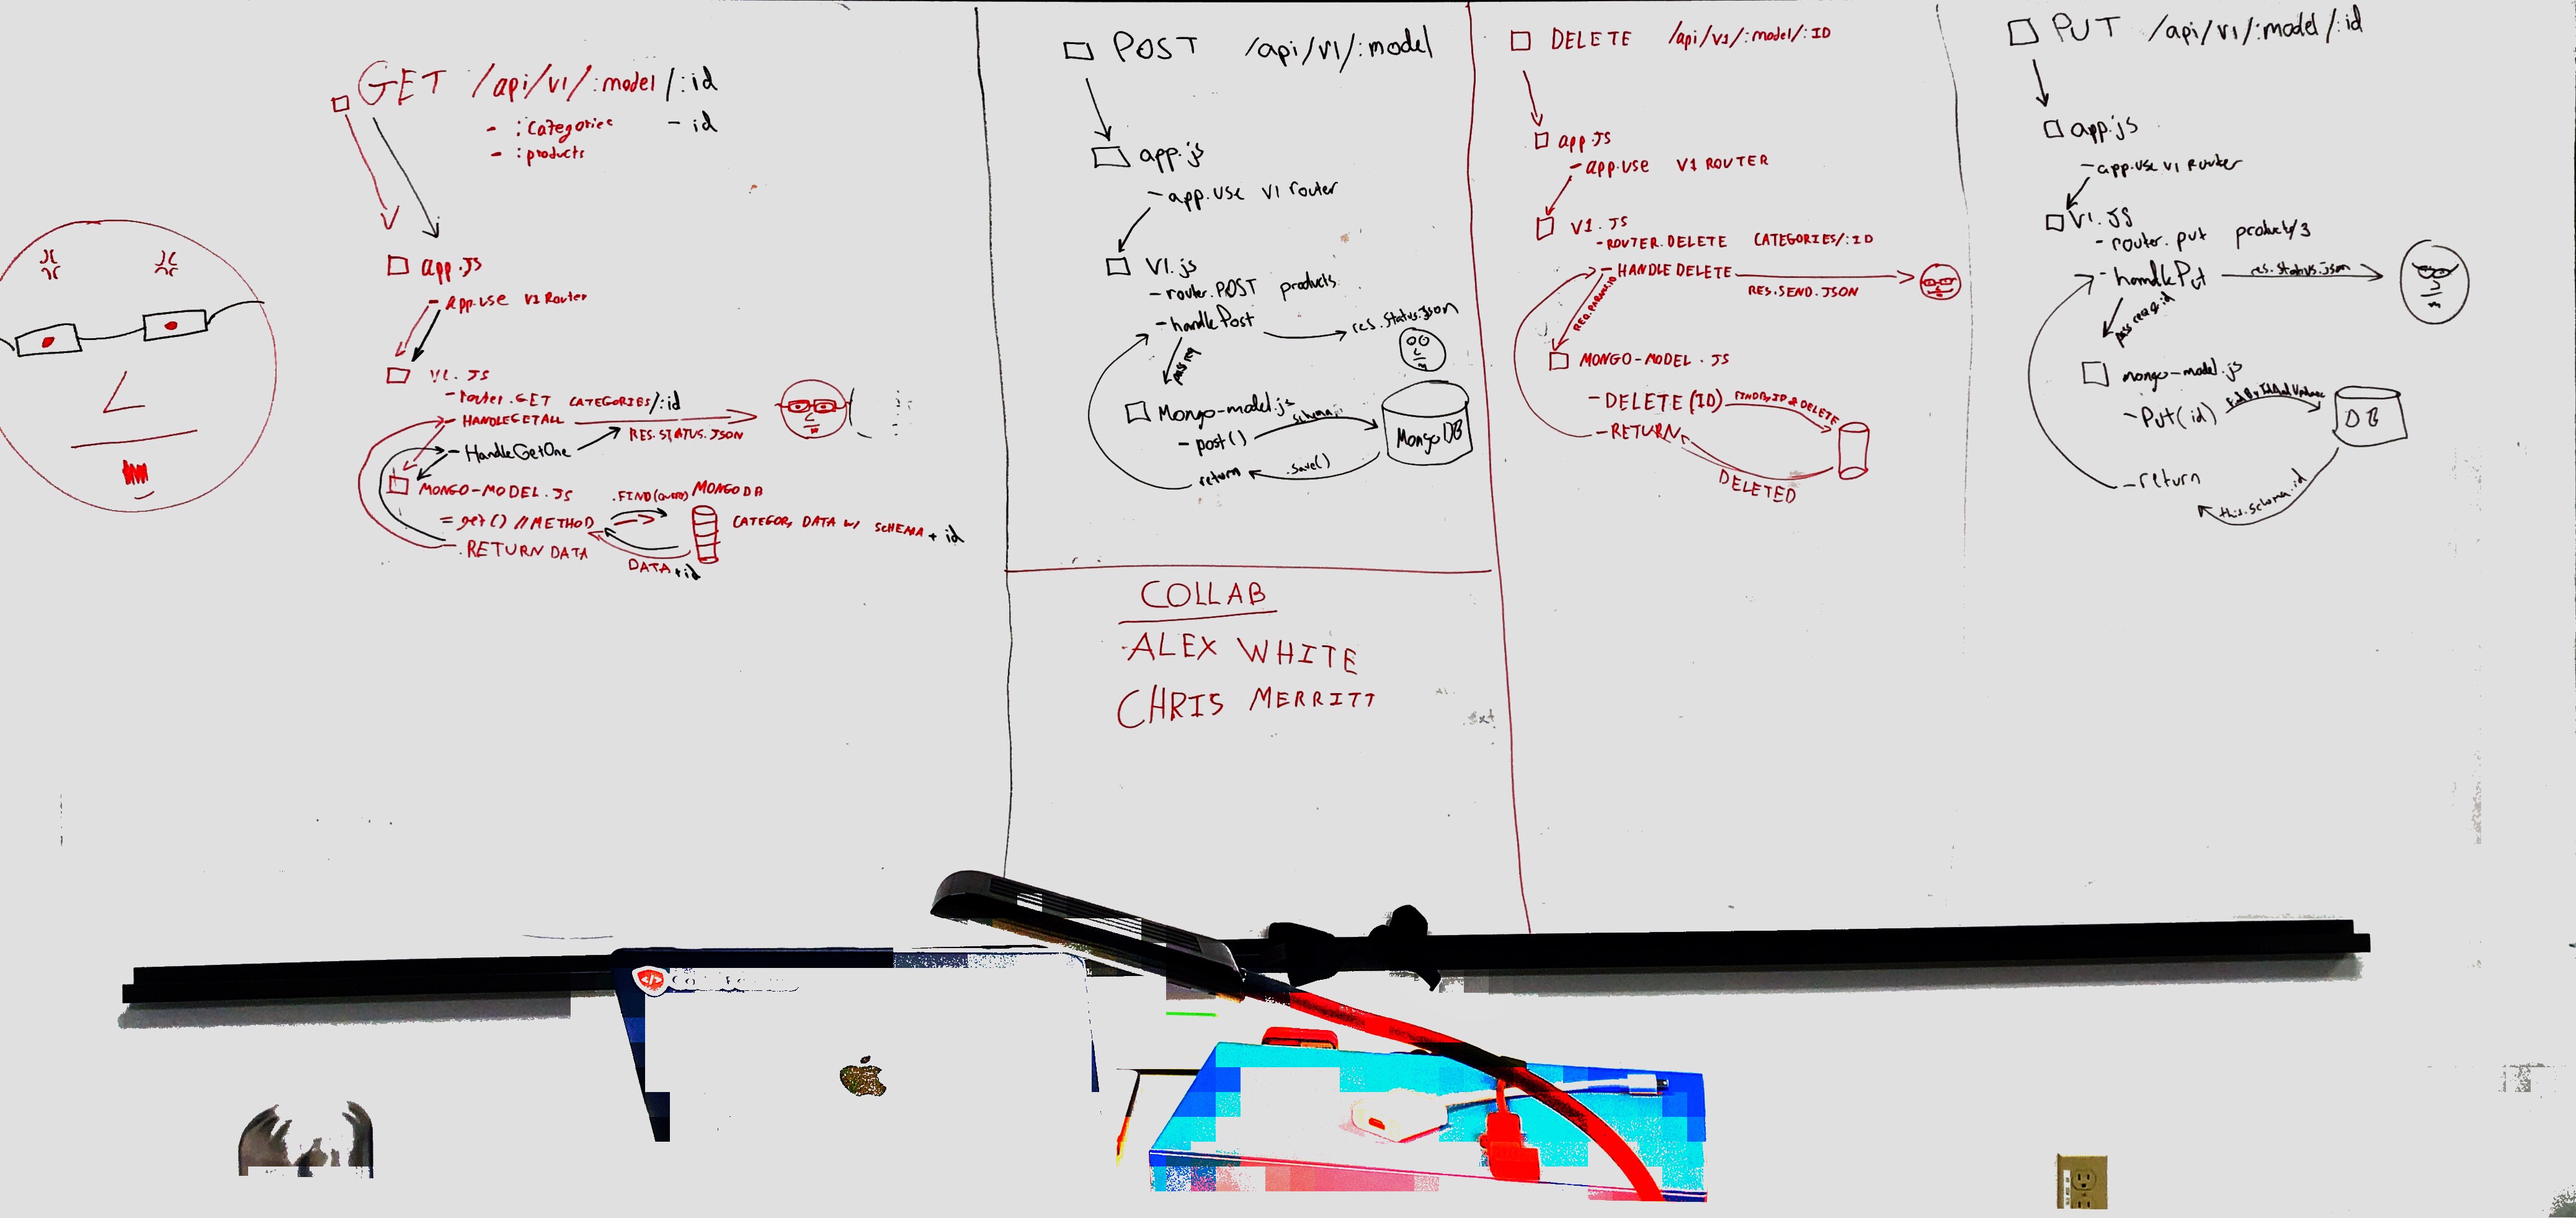 GET /api/v1/:model/:id
- :Categories - id
- :products
app.JS
- App.use V1 Router
V1.JS
- router.GET CATEGORIES/:id
- HANDLEGETALL
RES.STATUS.JSON
- HandleGetOne
MONGO-MODEL.JS
.FIND(QUERY) MONGO DB
= get() // METHOD
CATEGORY DATA W/ SCHEMA + id
. RETURN DATA
DATA + id
POST /api/v1/:model
app.js
- app.use V1 router
V1.js
- router.POST products
- handlePost
res.status.json
pass req
Mongo-model.js
schema
- post()
MongoDB
return
.save()
COLLAB
- ALEX WHITE
CHRIS MERRITT
DELETE /api/v1/:model/:ID
app.JS
- app.use V1 ROUTER
V1.JS
- ROUTER.DELETE CATEGORIES/:ID
- HANDLE DELETE
RES.SEND.JSON
REQ.PARAMS.ID
MONGO-MODEL.JS
- DELETE(ID)
FINDBYID & DELETE
- RETURN
DELETED
PUT /api/v1/:model/:id
app.js
- app.use V1 Router
V1.JS
- router.put products/3
- handlePut
res.status.json
mongo-model.js
- Put(id)
DB
- return
this.schema.id